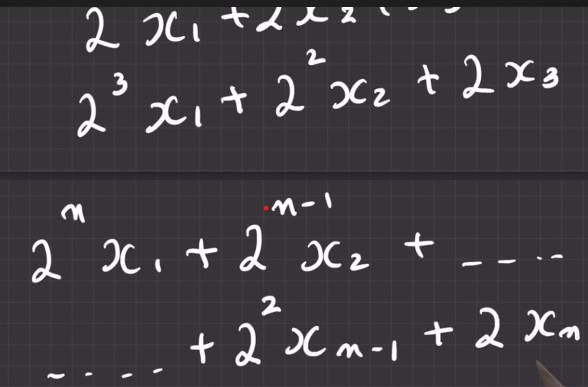 2 x₁ + 2 x₂
2³ x₁ + 2² x₂ + 2 x₃
2ⁿ x₁ + 2ⁿ⁻¹ x₂ + ----
---- + 2² xₙ₋₁ + 2 xₙ